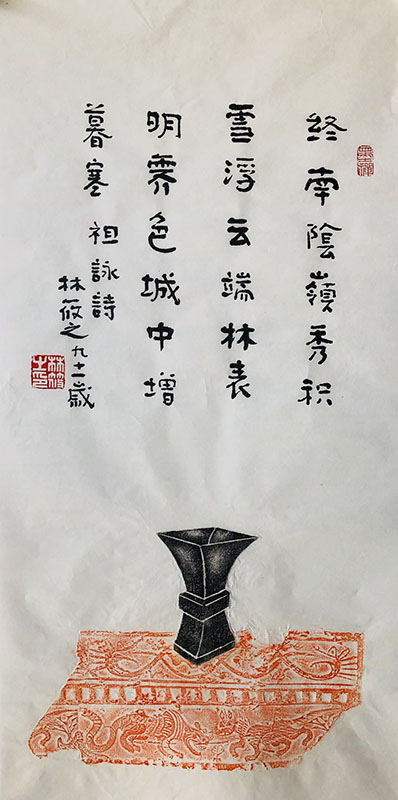 终南陰嶺秀积
雪浮云端林表
明霁色城中增
暮寒 祖詠詩
林筱之九十一歲
林筱之印